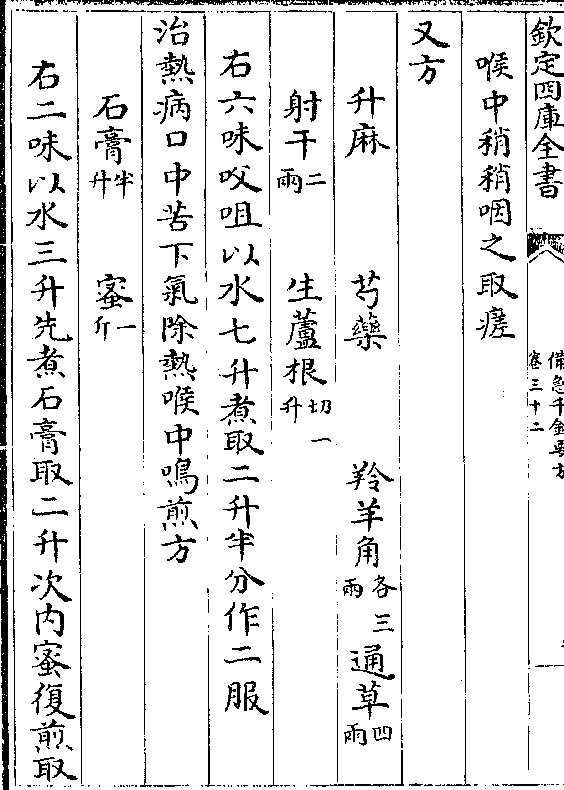 欽定四庫全書
備急千金要方
卷三十二
喉中稍稍咽之取瘥
又方
升麻 芍藥 羚羊角各三兩 通草四兩
射干二兩 生蘆根切一升
右六味㕮咀以水七升煮取二升半分作二服
治熱病口中苦下氣除熱喉中鳴煎方
石膏半升 蜜一斤
右二味以水三升先煮石膏取二升次内蜜復煎取